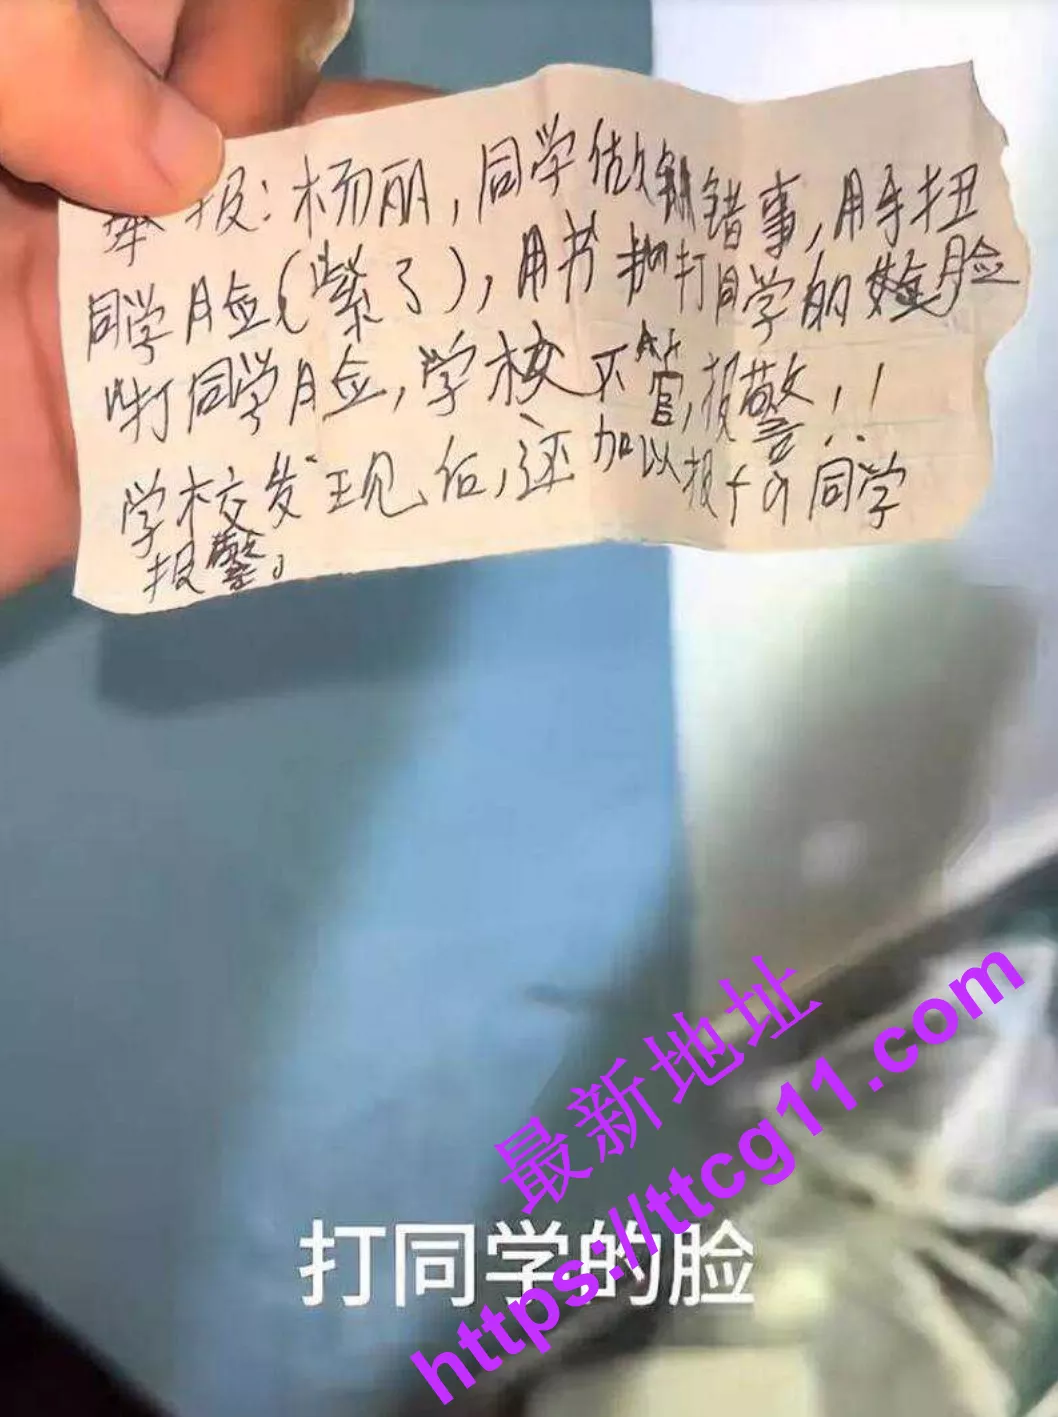 举报：杨丽，同学做错事，用手扭
同学脸（紫了），用书打同学的脸
打同学脸，学校不管，报警！！
学校发现后，还加以报的同学
报警。
最新地址
https://ttcg11.com
打同学的脸